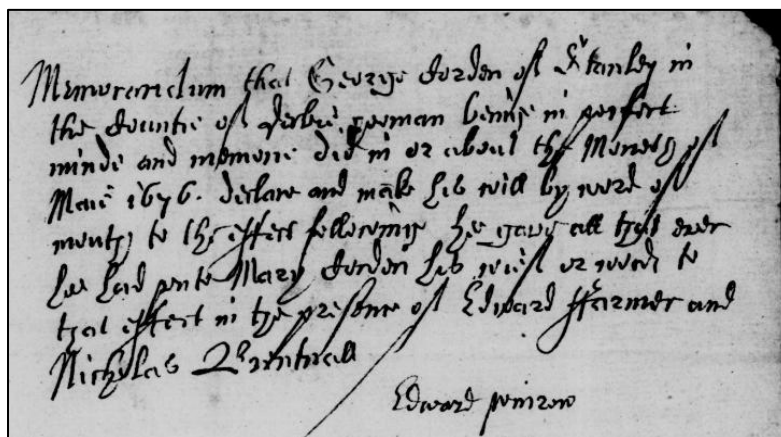 Memorandum that George Dorden of Stanley in
the Countie of Derbie yeoman being in perfect
minde and memorie did in or about the Moneth of
Maie 1676. declare and make his will by word of
mouth to the effect following he gave all that ever
hee had unto Mary Dorden his wife or words to
that effect in the presence of Edward ffarmer and
Nicholas
Edward